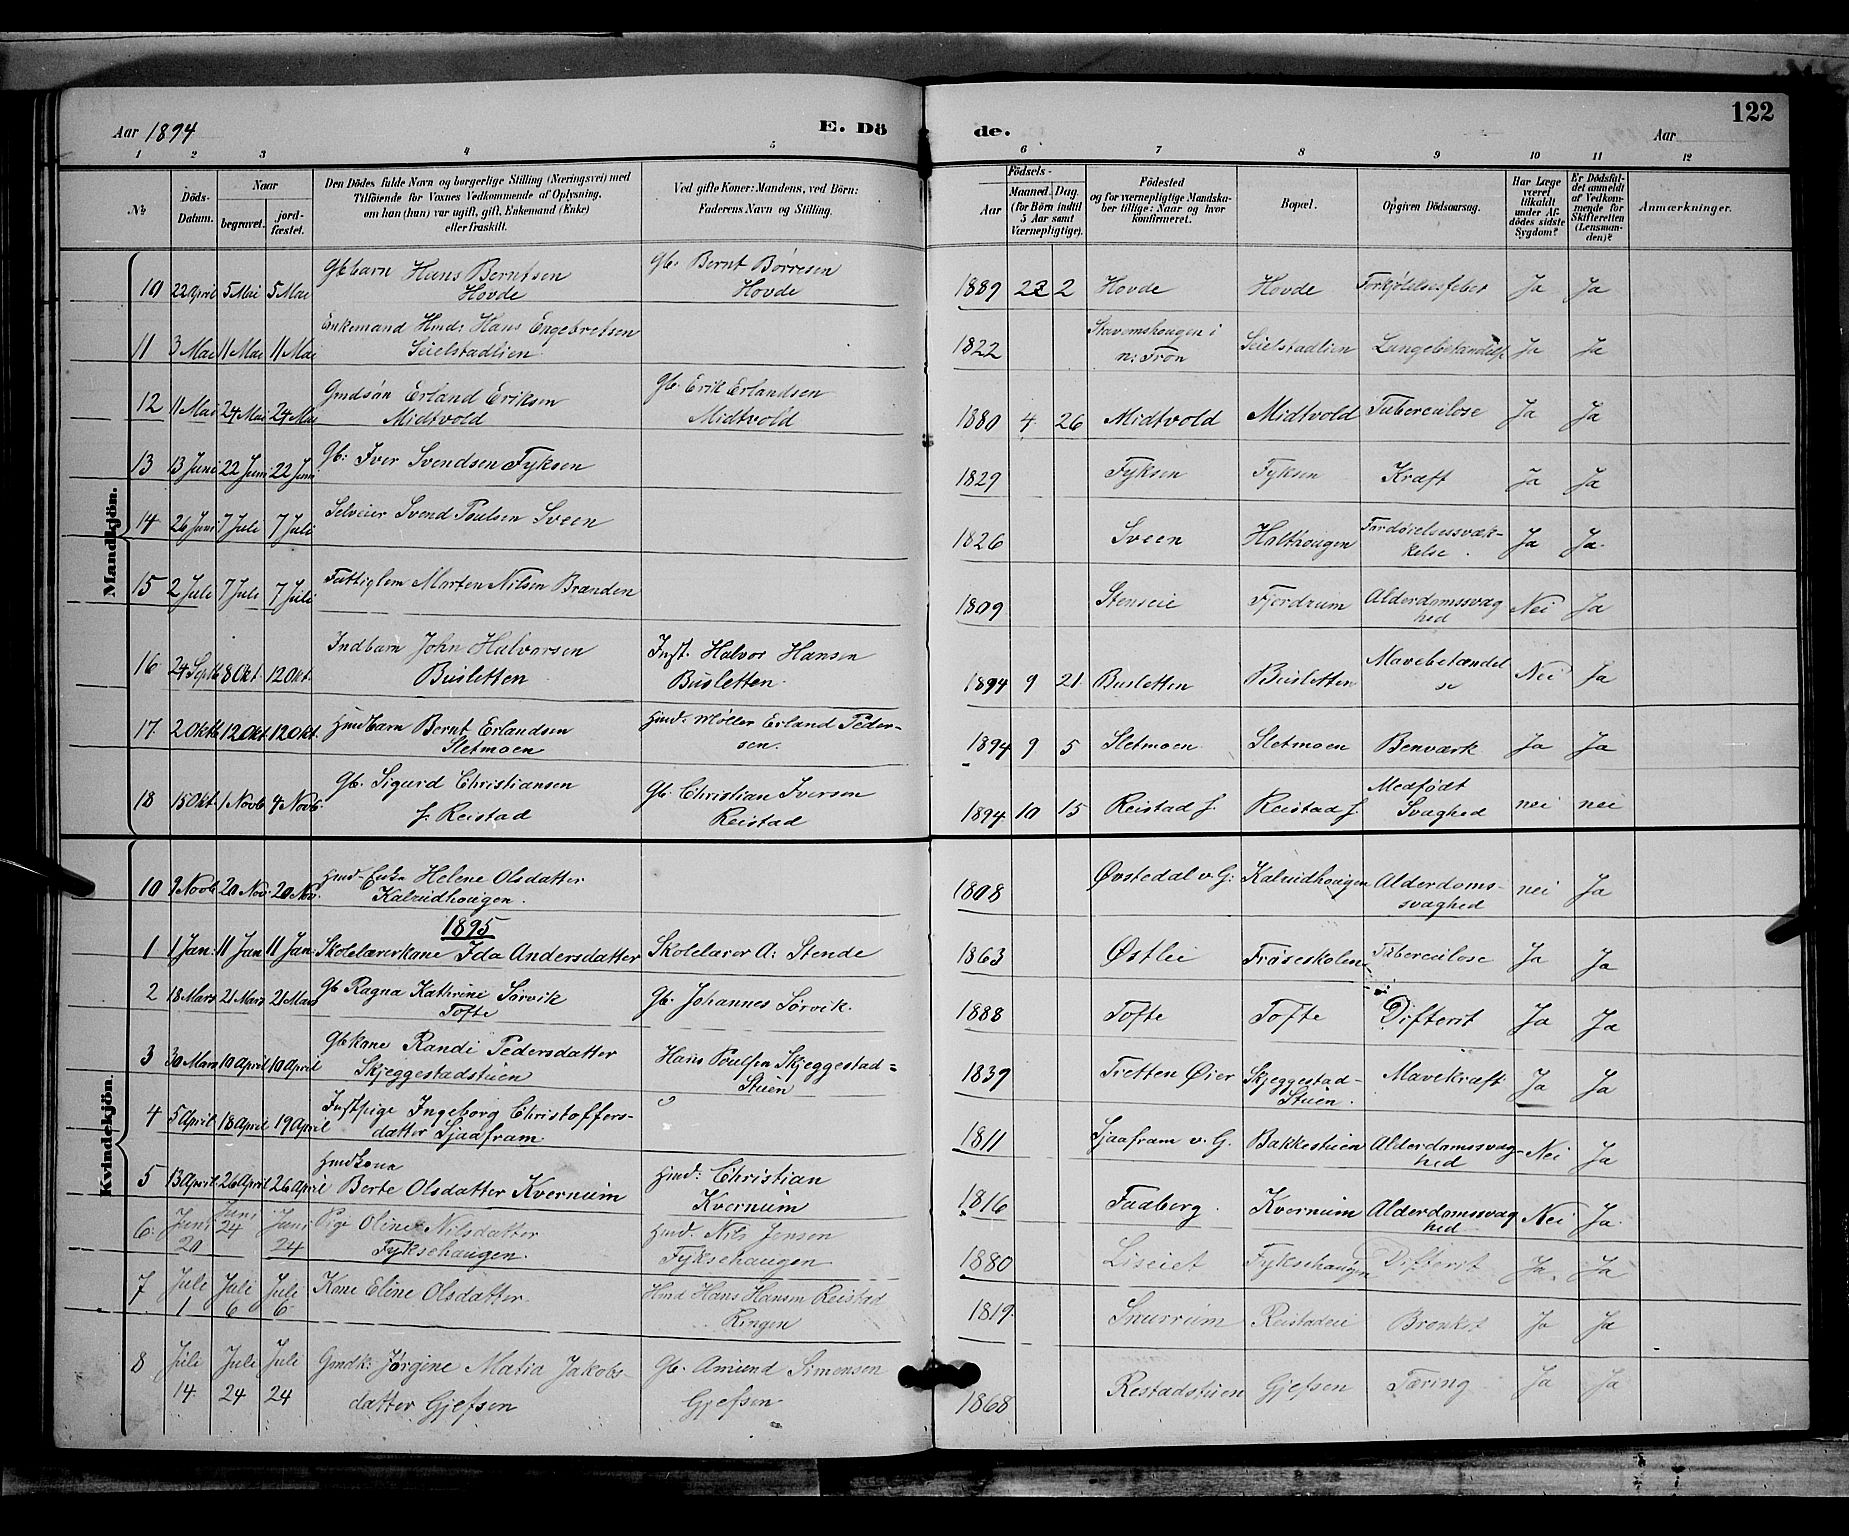 Aar 1894 E. Dö de. Aar 122
1 2 3 4 5 6 7 8 9 10 11 12
№ Döds-Datum. Naar begravet. jord-fæstet. Den Dödes fulde Navn og borgerlige Stilling (Næringsvei) med Tilföiende for Voxnes Vedkommende af Oplysning, om han (hun) var ugift, gift, Enkemand (Enke) eller fraskilt. Ved gifte Koner: Mandens, ved Börn: Faderens Navn og Stilling. Födsels- Aar Maaned. Dag. (for Börn indtil 5 Aar samt Værnepligtige). Födested og for værnepligtige Mandska-ber tillige: Naar og hvor konfirmeret. Bopæl. Opgiven Dödsaarsag. Har Læge været tilkaldt under Af-dödes sidste Sygdom? Er Dödsfal-det anmeldt af Vedkom-mende for Skifteretten (Lensman-den)? Anmærkninger.
Mandkjön.
10 22 April 5 Mai 5 Mai Gbbarn Hans Berntsen Hovde Gb. Bernt Børresen Hovde 1889 2 Hovde Hovde Forkjølelsesfeber Ja Ja
11 3 Mai 11 Mai 11 Mai Enkemand Hmd: Hans Engebretsen Seielstadlien 1822 Stavemshougen i n: Fron Seielstadlien Ja Ja
12 11 Mai 24 Mai 24 Mai Gmdsön Erland Eriksen Midtvold Gb. Erik Erlandsen Midtvold 1880 4 26 Midtvold Midtvold Tuberculose Ja Ja
13 13 Juni 22 Juni 22 Juni Gb: Iver Svendsen Fyksen 1829 Fyksen Fyksen Kræft Ja Ja
14 26 Juni 7 Juli 7 Juli Selveier Svend Poulsen Sveen 1826 Sveen Holthougen Fordøielsessvæk-kelse. Ja Ja.
15 2 Juli 7 Juli 7 Juli Fattiglem Morten Nilsen Brænden 1809 Stenseie Fjerdrum Alderdomssvag hed Nei Ja
16 24 Septb 8 Okt. 12 Okt. Indbarn John Halvorsen Busletten Inst. Halvor Hansen Busletten. 1894 9 21. Busletten Busletten Mavebetændel se Nei Ja
17. 2 Oktb 12 Okt. 12 Okt. Hmdbarn Bernt Erlandsen Sletmoen Hmd. Møller Erland Peder-sen. 1894 9 5 Sletmoen Sletmoen Benværk Ja Ja
18 15 Okt. 1 Novb 4 Novb. Gb. Sigurd Christiansen J. Reistad Gb. Christian Iversen Reistad 1894 10 15 Reistad J. Reistad J. Medfödt Svaghed nei nei
Kvindekjön.
10 9 Novb 20 Nov. 20 Nov. Hmd-Enke Helene Olsdatter Kalrudhougen. 1808 Øvstedal v. G: Kalrudhougen Alderdoms-svaghed nei Ja
1895
1 1 Jan. 11 Jan 11 Jan. Skolelærerkone Ida Andersdatter Skolelærer A: Stende 1863 Østlie Frøseskolen Tuberculose Ja Ja
2 18 Mars 21 Mars 21 Mars Gb Ragna Kathrine Sørvik Tofte Gb. Johannes Sørvik. 1888 Tofte Tofte Difterit Ja Ja
3 30 Mars 10 April 10 April Gbkone Randi Pedersdatter Skjeggestadstuen Hans Poulsen Skjeggestad=Stuen 1839 Tretten Øier Skjeggestad-Stuen. Mavekræft Ja Ja
4 5 April 18 April 19 April Instpige Ingeborg Christoffers-datter Sjaafram 1811 Sjaafram v. G. Bakkestuen Alderdomssvag-hed Nei Ja
5 13 April 26 April 26 April Hmdkona Berte Olsdatter Kvernum Hmd: Christian Kvernum 1816 Faaberg. Kvernum Alderdomssvag hed Nei Ja.
6. Juni 20 Juni 24 Juni 24 Pige Oline Nilsdatter Fyksehaugen. Hmd. Nils Jensen Fyksehaugen 1880 Liseiet Fyksehaugen Difterit Ja. Ja
7 Juli 1 Juli 6 Juli 6 Kone Eline Olsdatter. Hmd Hans Hansen Reistad Ringen 1819. Snurrum Reistadeie Bronkit Ja Ja
8 Juli 14. Juli 24 Juli 24 Gmdk: Jørgine Matia Jakobs-datter Gjefsen Gb. Amund Simensen Gjefsen 1868 Restadstuen Gjefsen Tæring Ja Ja